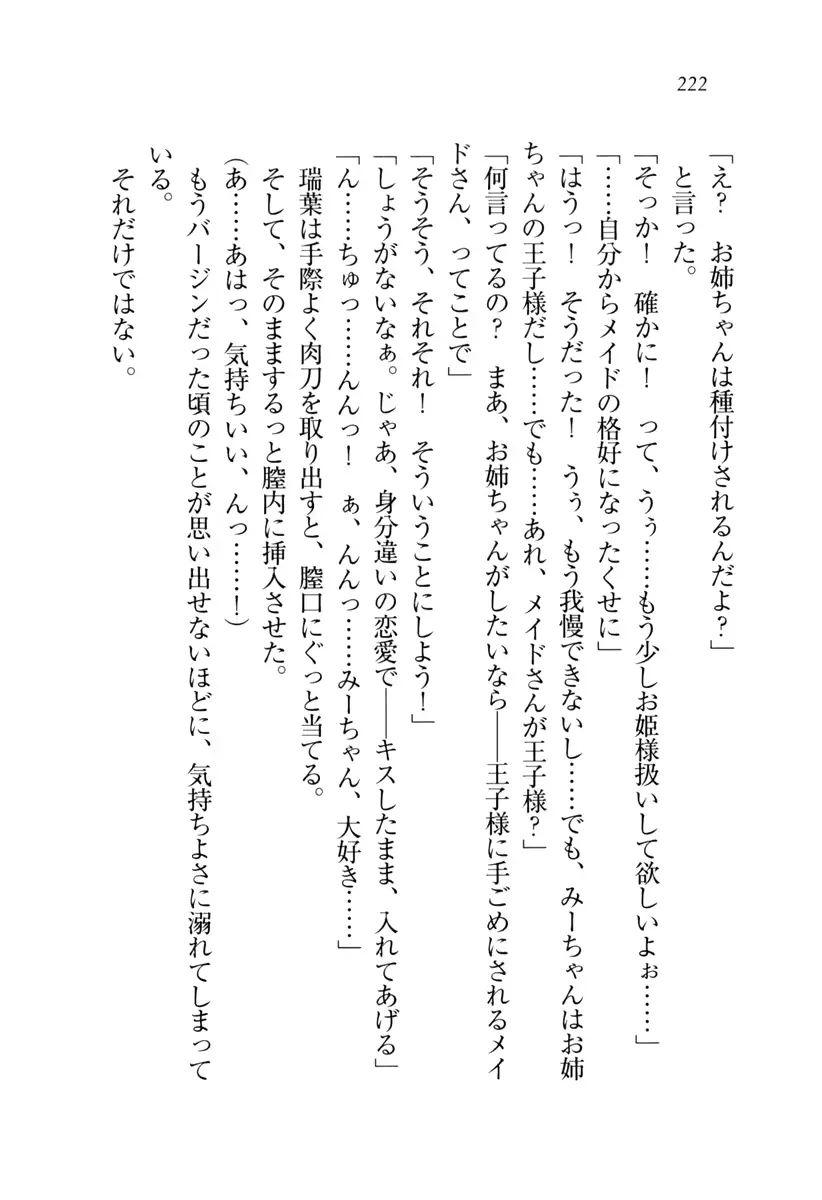 222
「え?　お姉ちゃんは種付けされるんだよ?」
と言った。
「そっか!　確かに!　って、うぅ……もう少しお姫様扱いして欲しいよぉ……」
「……自分からメイドの格好になったくせに」
「はうっ!　そうだった!　うぅ、もう我慢できないし……でも、みーちゃんはお姉
ちゃんの王子様だし……でも……あれ、メイドさんが王子様?」
「何言ってるの?　まあ、お姉ちゃんがしたいなら――王子様に手ごめにされるメイ
ドさん、ってことで」
「そうそう、それそれ!　そういうことにしよう!」
「しょうがないなぁ。じゃあ、身分違いの恋愛で――キスしたまま、入れてあげる」
「ん……ちゅっ……んんっ!　ぁ、んんっ……みーちゃん、大好き……」
瑞葉は手際よく肉刀を取り出すと、膣口にぐっと当てる。
そして、そのままするっと膣内に挿入させた。
(あ……あはっ、気持ちいい、んっ……!)
もうバージンだった頃のことが思い出せないほどに、気持ちよさに溺れてしまって
いる。
それだけではない。